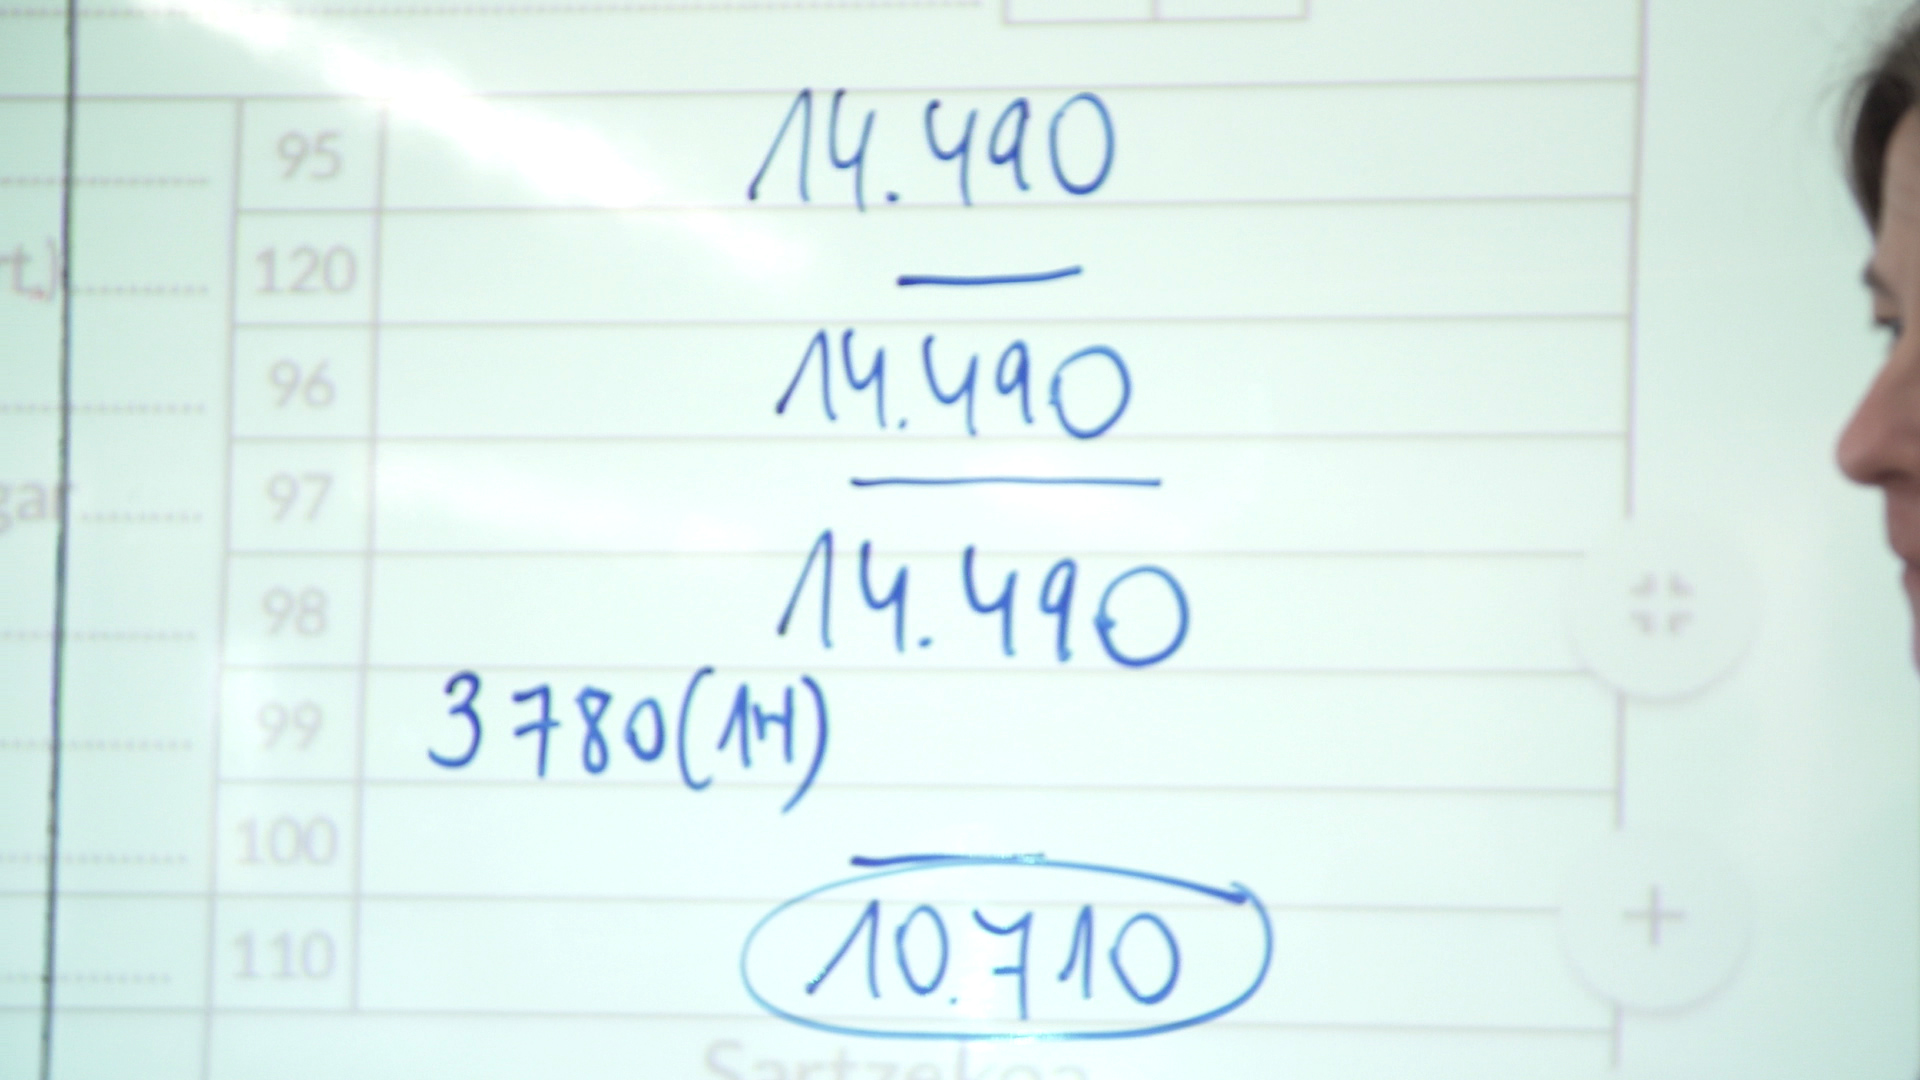 95 14.490
rt.) 120 —
96 14.490
gar 97 —
98 14.490
99 3780(1H)
100 —
110 10.710
Sartzekoa